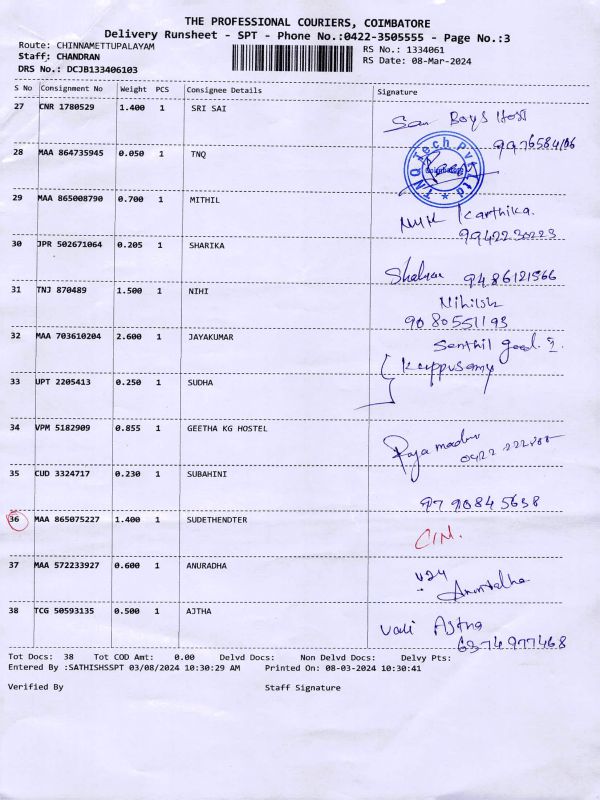 THE PROFESSIONAL COURIERS, COIMBATORE
Delivery Runsheet - SPT - Phone No.:0422-3505555 - Page No.:3
Route: CHINNAMETTUPALAYAM RS No.: 1334061
Staff: CHANDRAN RS Date: 08-Mar-2024
DRS No.: DCJB133406103
S No Consignment No Weight PCS Consignee Details Signature
27 CNR 1780529 1.400 1 SRI SAI
Boys Host
9976584106
28 MAA 864735945 0.050 1 TNQ
TNQ Tech Pvt Ltd
Coimbatore
29 MAA 865008790 0.700 1 MITHIL
Karthika.
9942230223
30 JPR 502671064 0.205 1 SHARIKA
9486121566
31 TNJ 870489 1.500 1 NIHI
Nihilsh
9080551193
32 MAA 703610204 2.600 1 JAYAKUMAR
Senthil
Kuppusamy
33 UPT 2205413 0.250 1 SUDHA
34 VPM 5182909 0.855 1 GEETHA KG HOSTEL
Raja
0422
35 CUD 3324717 0.230 1 SUBAHINI
9790845638
36 MAA 865075227 1.400 1 SUDETHENDTER
C/M.
37 MAA 572233927 0.600 1 ANURADHA
38 TCG 50593135 0.500 1 AJTHA
6374977468
Tot Docs: 38 Tot COD Amt: 0.00 Delvd Docs: Non Delvd Docs: Delvy Pts:
Entered By :SATHISHSSPT 03/08/2024 10:30:29 AM Printed On: 08-03-2024 10:30:41
Verified By Staff Signature